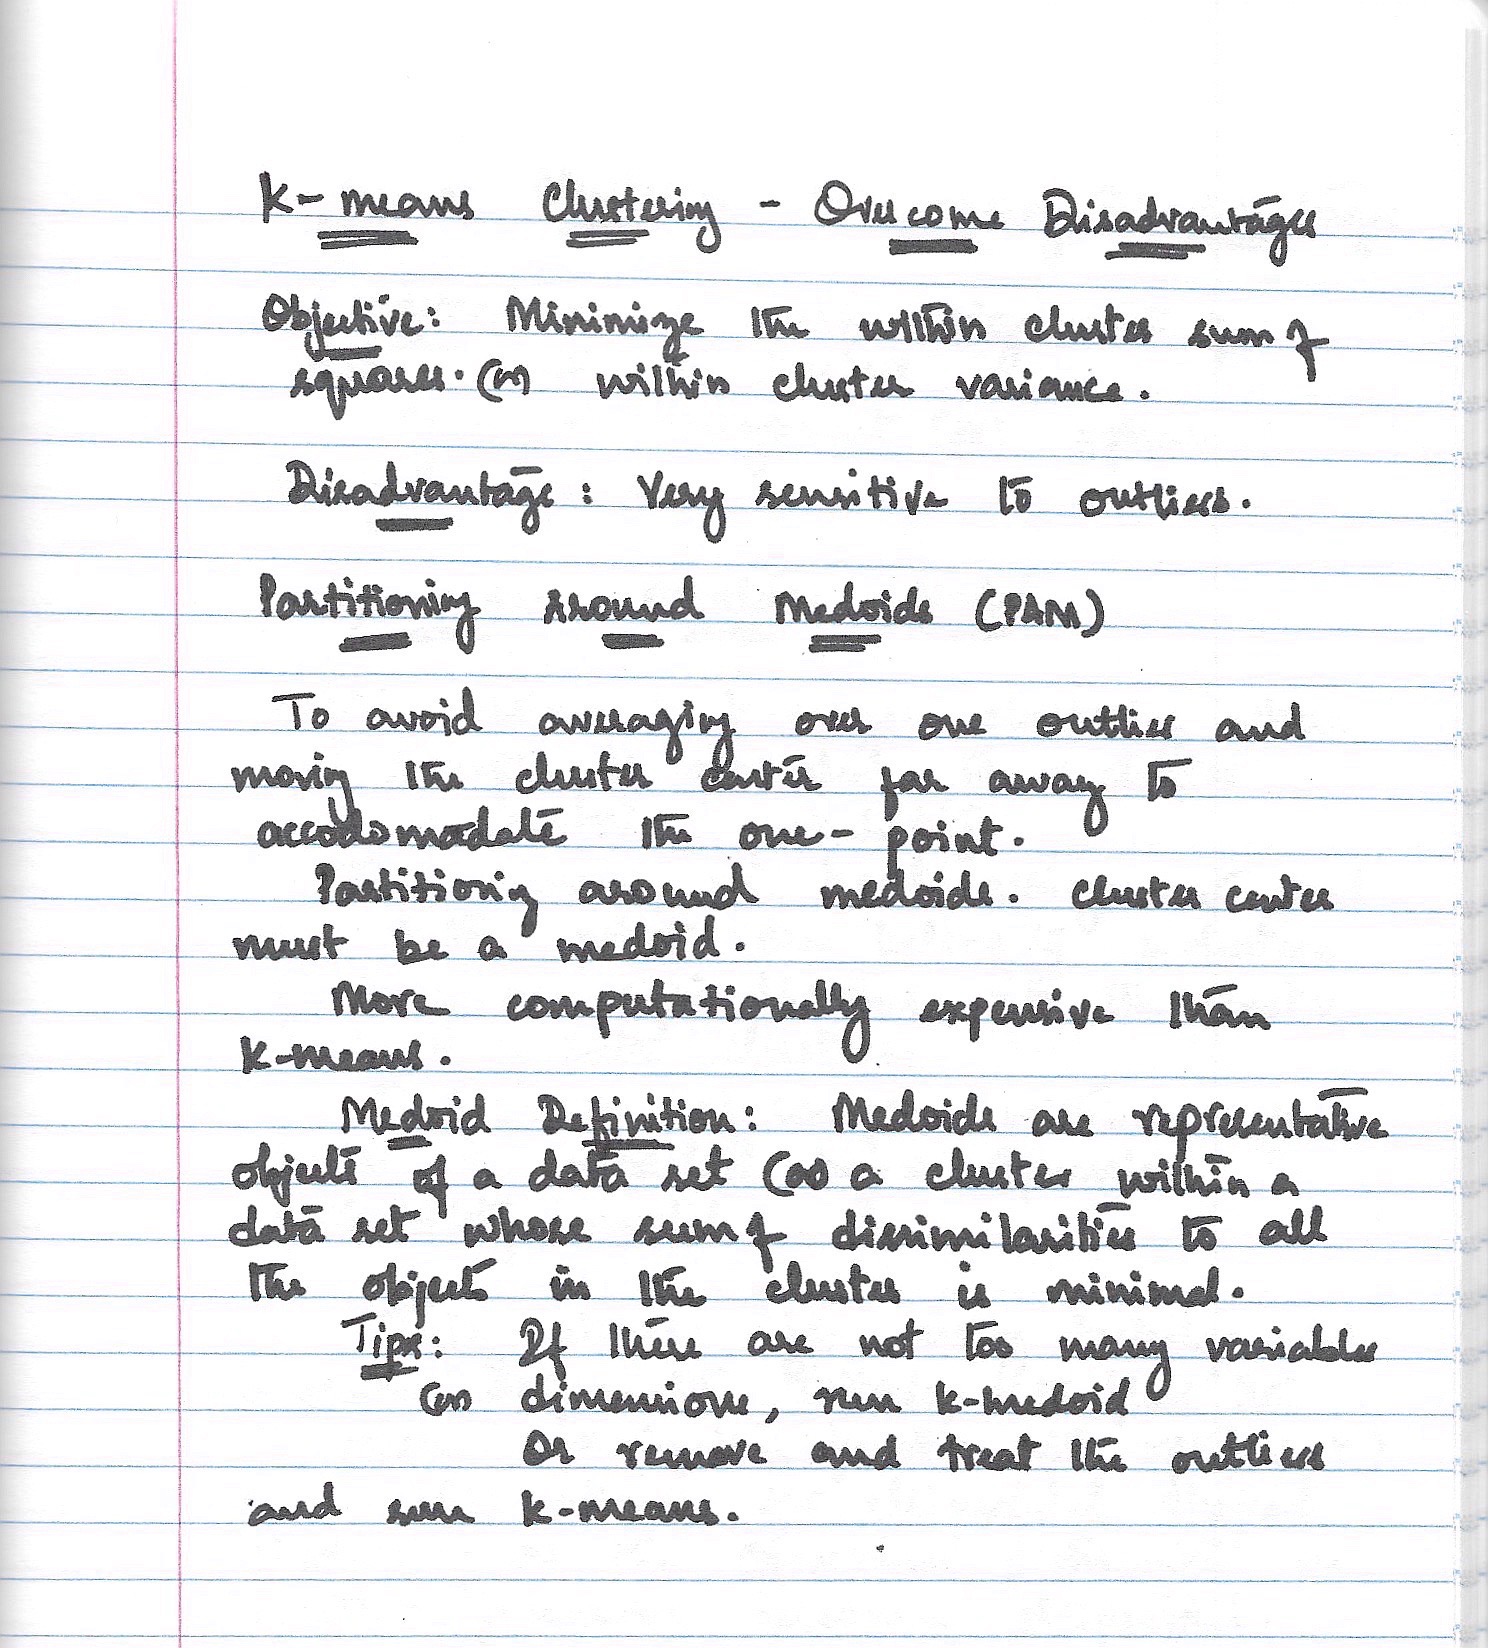 K-means Clustering - Overcome Disadvantages
Objective: Minimize the within cluster sum of
squares. (or) within cluster variance.
Disadvantage: Very sensitive to outliers.
Partitioning around Medoids (PAM)
To avoid averaging over one outlier and
moving the cluster center far away to
accodomodate the one-point.
Partitioning around medoids. Cluster center
must be a medoid.
More computationally expensive than
K-means.
Medoid Definition: Medoids are representative
objects of a data set (or) a cluster within a
data set whose sum of dissimilarities to all
the objects in the cluster is minimal.
Tips: If there are not too many variables
(or) dimensions, run K-medoid
Or remove and treat the outliers
and run K-means.